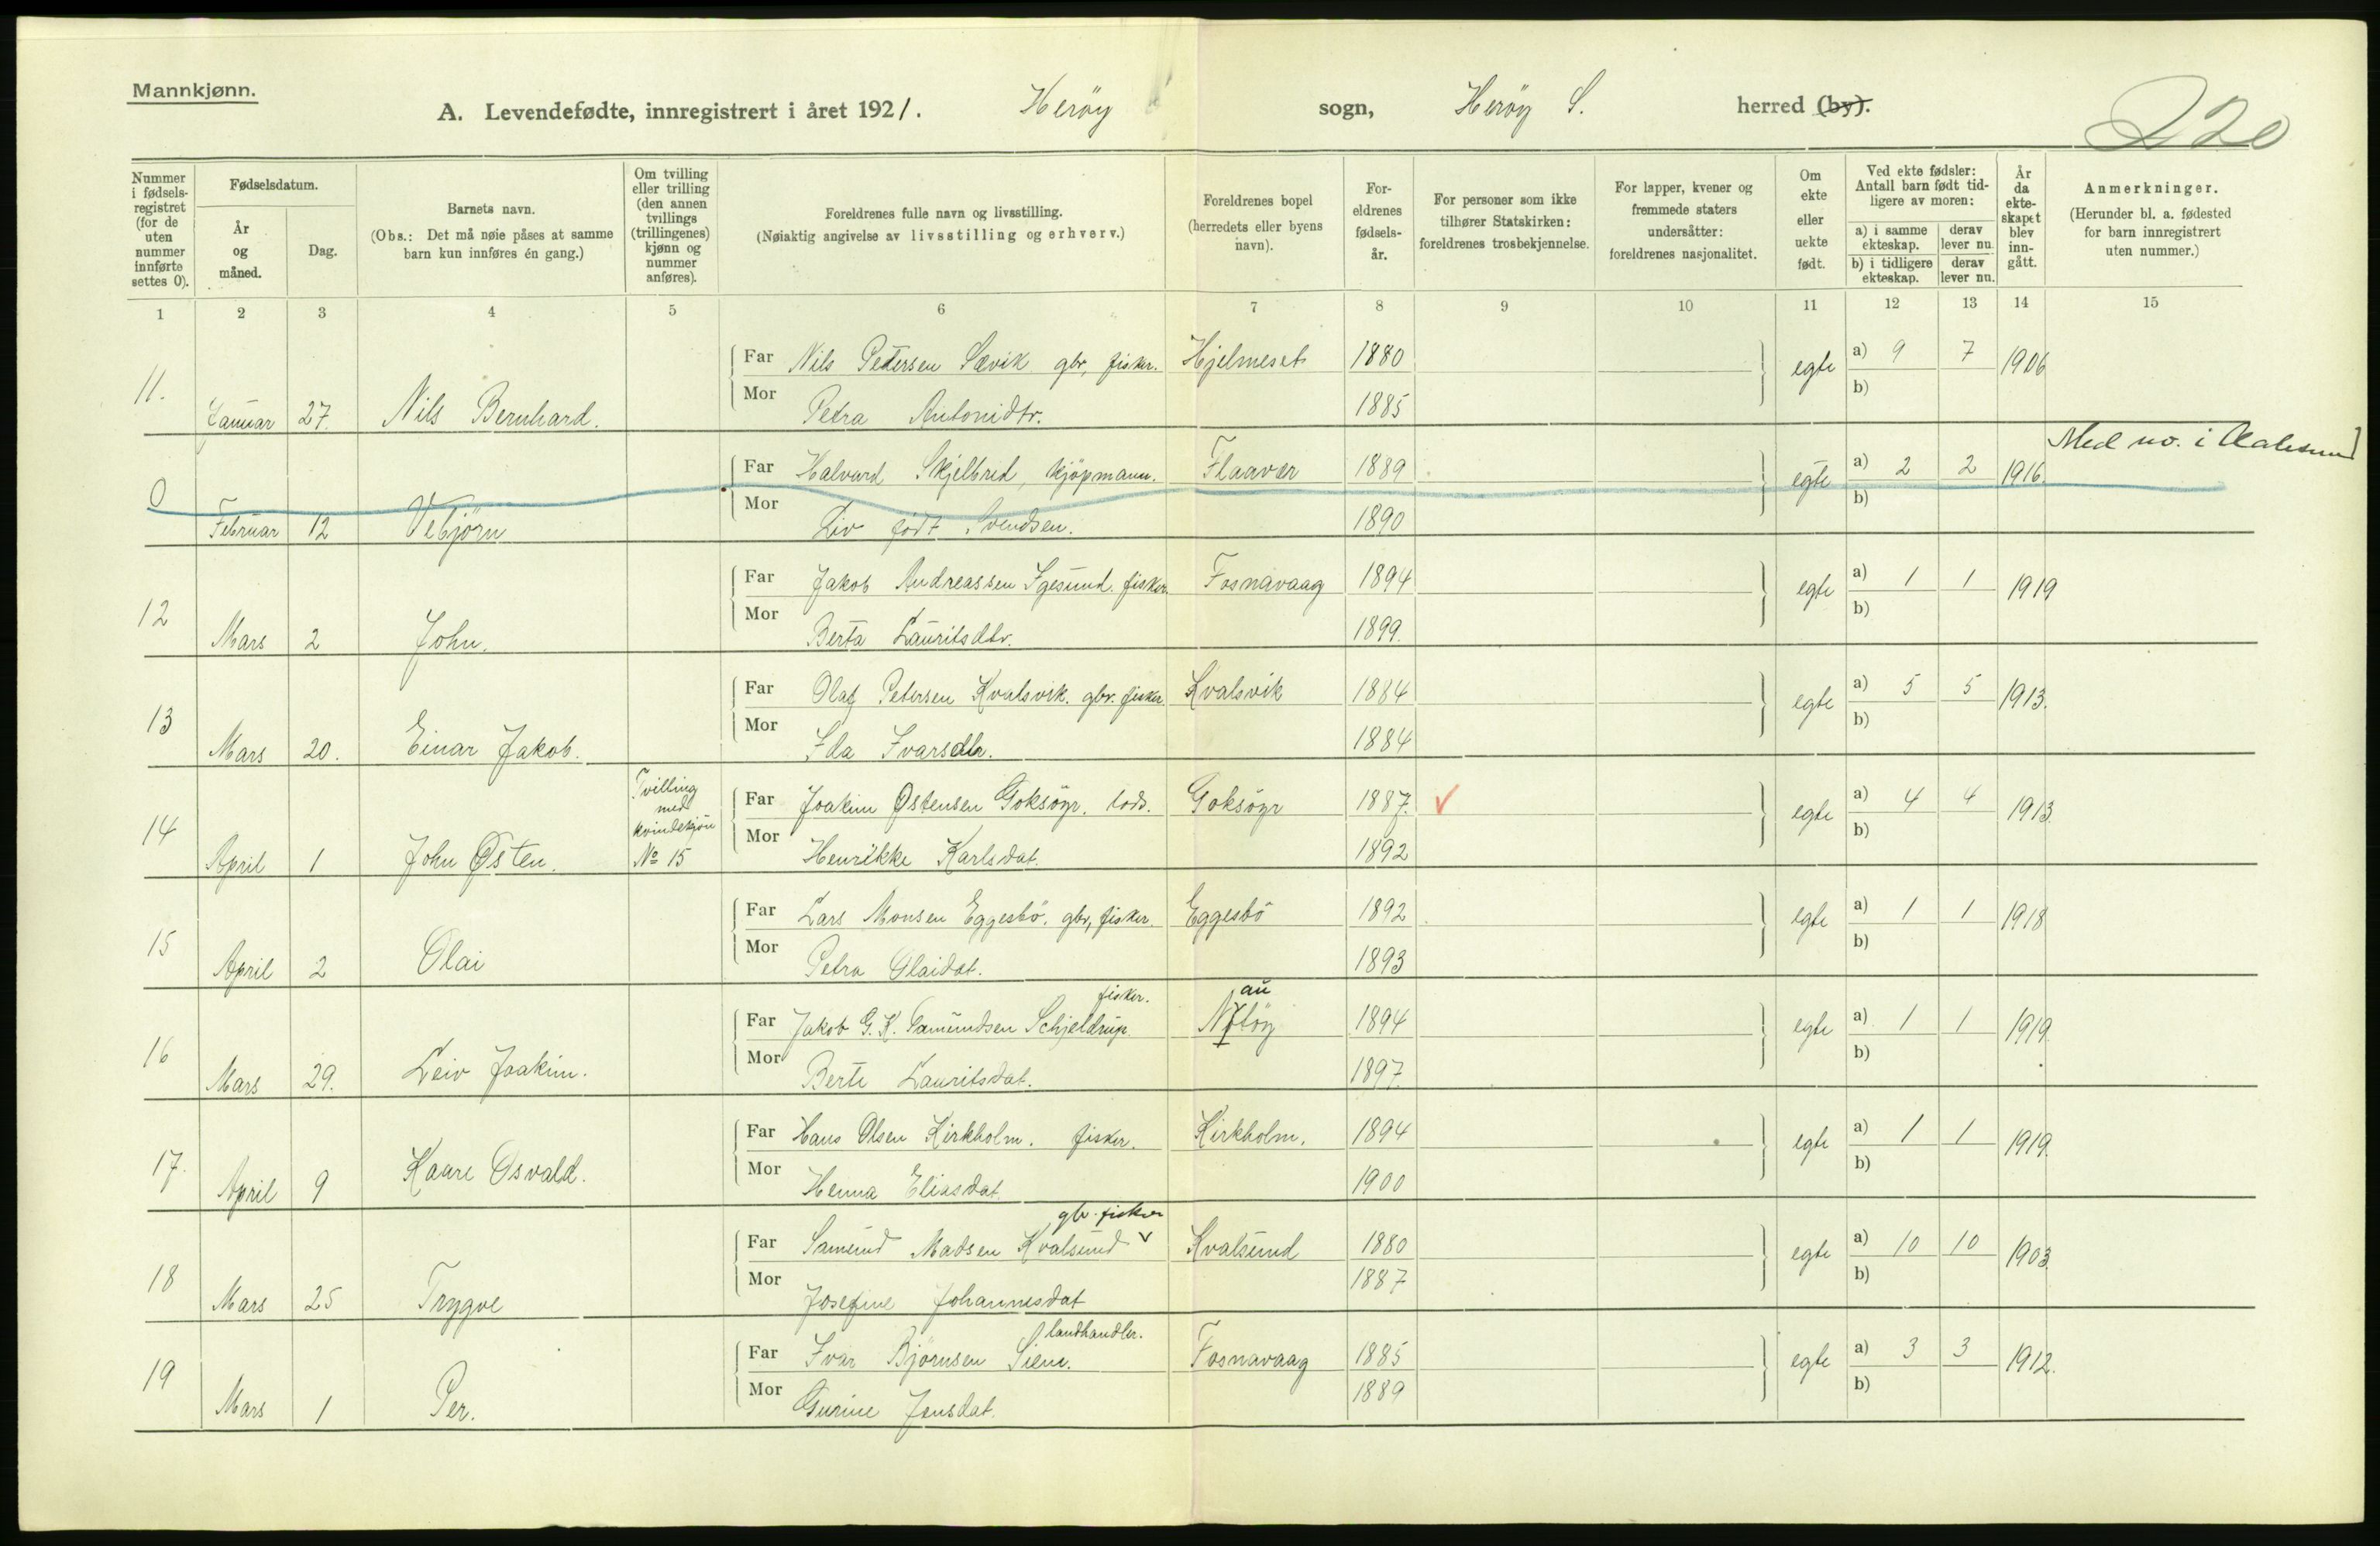 Mannkjønn.
A. Levendefødte, innregistrert i året 1921. Heröy sogn, Heröy S. herred (by). 220
Nummer i fødsels-registret (for de uten nummer innførte settes 0).
Fødselsdatum.
År og måned.
Dag.
Barnets navn.
(Obs.: Det må nøie påses at samme barn kun innføres én gang.)
Om tvilling eller trilling (den annen tvillings (trillingenes) kjønn og nummer anføres).
Foreldrenes fulle navn og livsstilling.
(Nøiaktig angivelse av livsstilling og erhverv.)
Foreldrenes bopel (herredets eller byens navn).
For-eldrenes fødsels-år.
For personer som ikke tilhører Statskirken: foreldrenes trosbekjennelse.
For lapper, kvener og fremmede staters undersåtter: foreldrenes nasjonalitet.
Om ekte eller uekte født.
Ved ekte fødsler: Antall barn født tid-ligere av moren:
a) i samme ekteskap. derav lever nu.
b) i tidligere ekteskap. derav lever nu.
År da ekte-skapet blev inn-gått.
Anmerkninger.
(Herunder bl. a. fødested for barn innregistrert uten nummer.)
1 2 3 4 5 6 7 8 9 10 11 12 13 14 15
Far Nils Petersen Sævik gbr, fisker. Hjelmeset 1880 egte a) 9 7 1906
11. Januar 27. Nils Bernhard. Mor Petra Antonidtr. 1885 b)
Med no. i Aalesund
Far Halvard Skjelbred, kjöpmann. Flaavær 1889 egte a) 2 2 1916.
0 Februar 12 Vebjörn Mor Liv födt Svendsen. 1890 b)
Far Jakob Andreassen Igesund. fisker. Fosnavaag 1894 egte a) 1 1 1919
12 Mars 2 John. Mor Berta Lauritsdtr. 1899. b)
Far Olaf Petersen Kvalsvik. gbr. fisker Kvalsvik 1884 egte a) 5 5 1913.
13 Mars 20. Einar Jakob. Mor Ida Ivarsdtr. 1884 b)
Tvilling med kvindekjön No 15
Far Joakim Østensen Goksöyr. lods. Goksöyr 1887. egte a) 4 4 1913.
14 April 1 John Østen. Mor Henrikke Karlsdat. 1892 b)
Far Lars Monsen Eggesbö. gbr, fisker. Eggesbö 1892 egte a) 1 1 1918
15 April 2 Olai Mor Petra Olaidat. 1893 b)
fisker. au
Far Jakob G. K. Samundsen Schjeldrup. Nötöy 1894 egte a) 1 1 1919.
16 Mars 29. Leiv Joakim. Mor Berte Lauritsdat. 1897. b)
Far Hans Olsen Kirkholm. fisker. Kirkholm. 1894 egte a) 1 1 1919.
17. April 9 Kaare Osvald. Mor Henna Eliasdat. 1900 b)
gbr. fisker
Far Samund Madsen Kvalsund Kvalsund 1880 egte a) 10 10 1903.
18 Mars 25 Trygve Mor Josefine Johannesdat 1887 b)
landhandler.
Far Ivar Björnsen Siem. Fosnavaag 1885 egte a) 3 3 1912.
19 Mars 1 Per. Mor Gurine Jensdat. 1889 b)